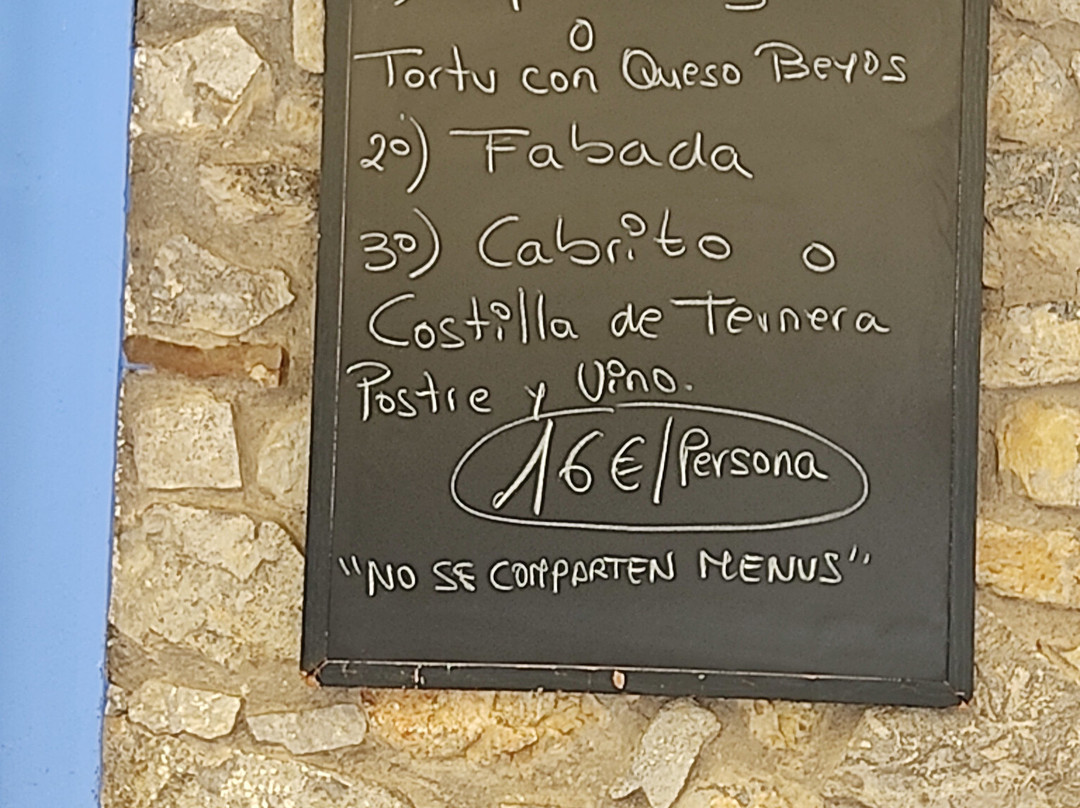 o
Tortu con Queso Beyos
2º) Fabada
3º) Cabrito o
Costilla de Ternera
Postre y Vino.
16€/Persona
"NO SE COMPARTEN MENUS"